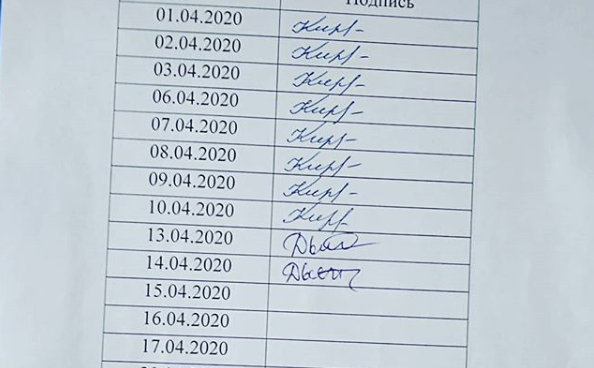 Подпись
01.04.2020 Кирг-
02.04.2020 Кирг-
03.04.2020 Кирг-
06.04.2020 Кирг-
07.04.2020 Кирг-
08.04.2020 Кирг-
09.04.2020 Кирг-
10.04.2020 Кирг
13.04.2020
14.04.2020
15.04.2020
16.04.2020
17.04.2020